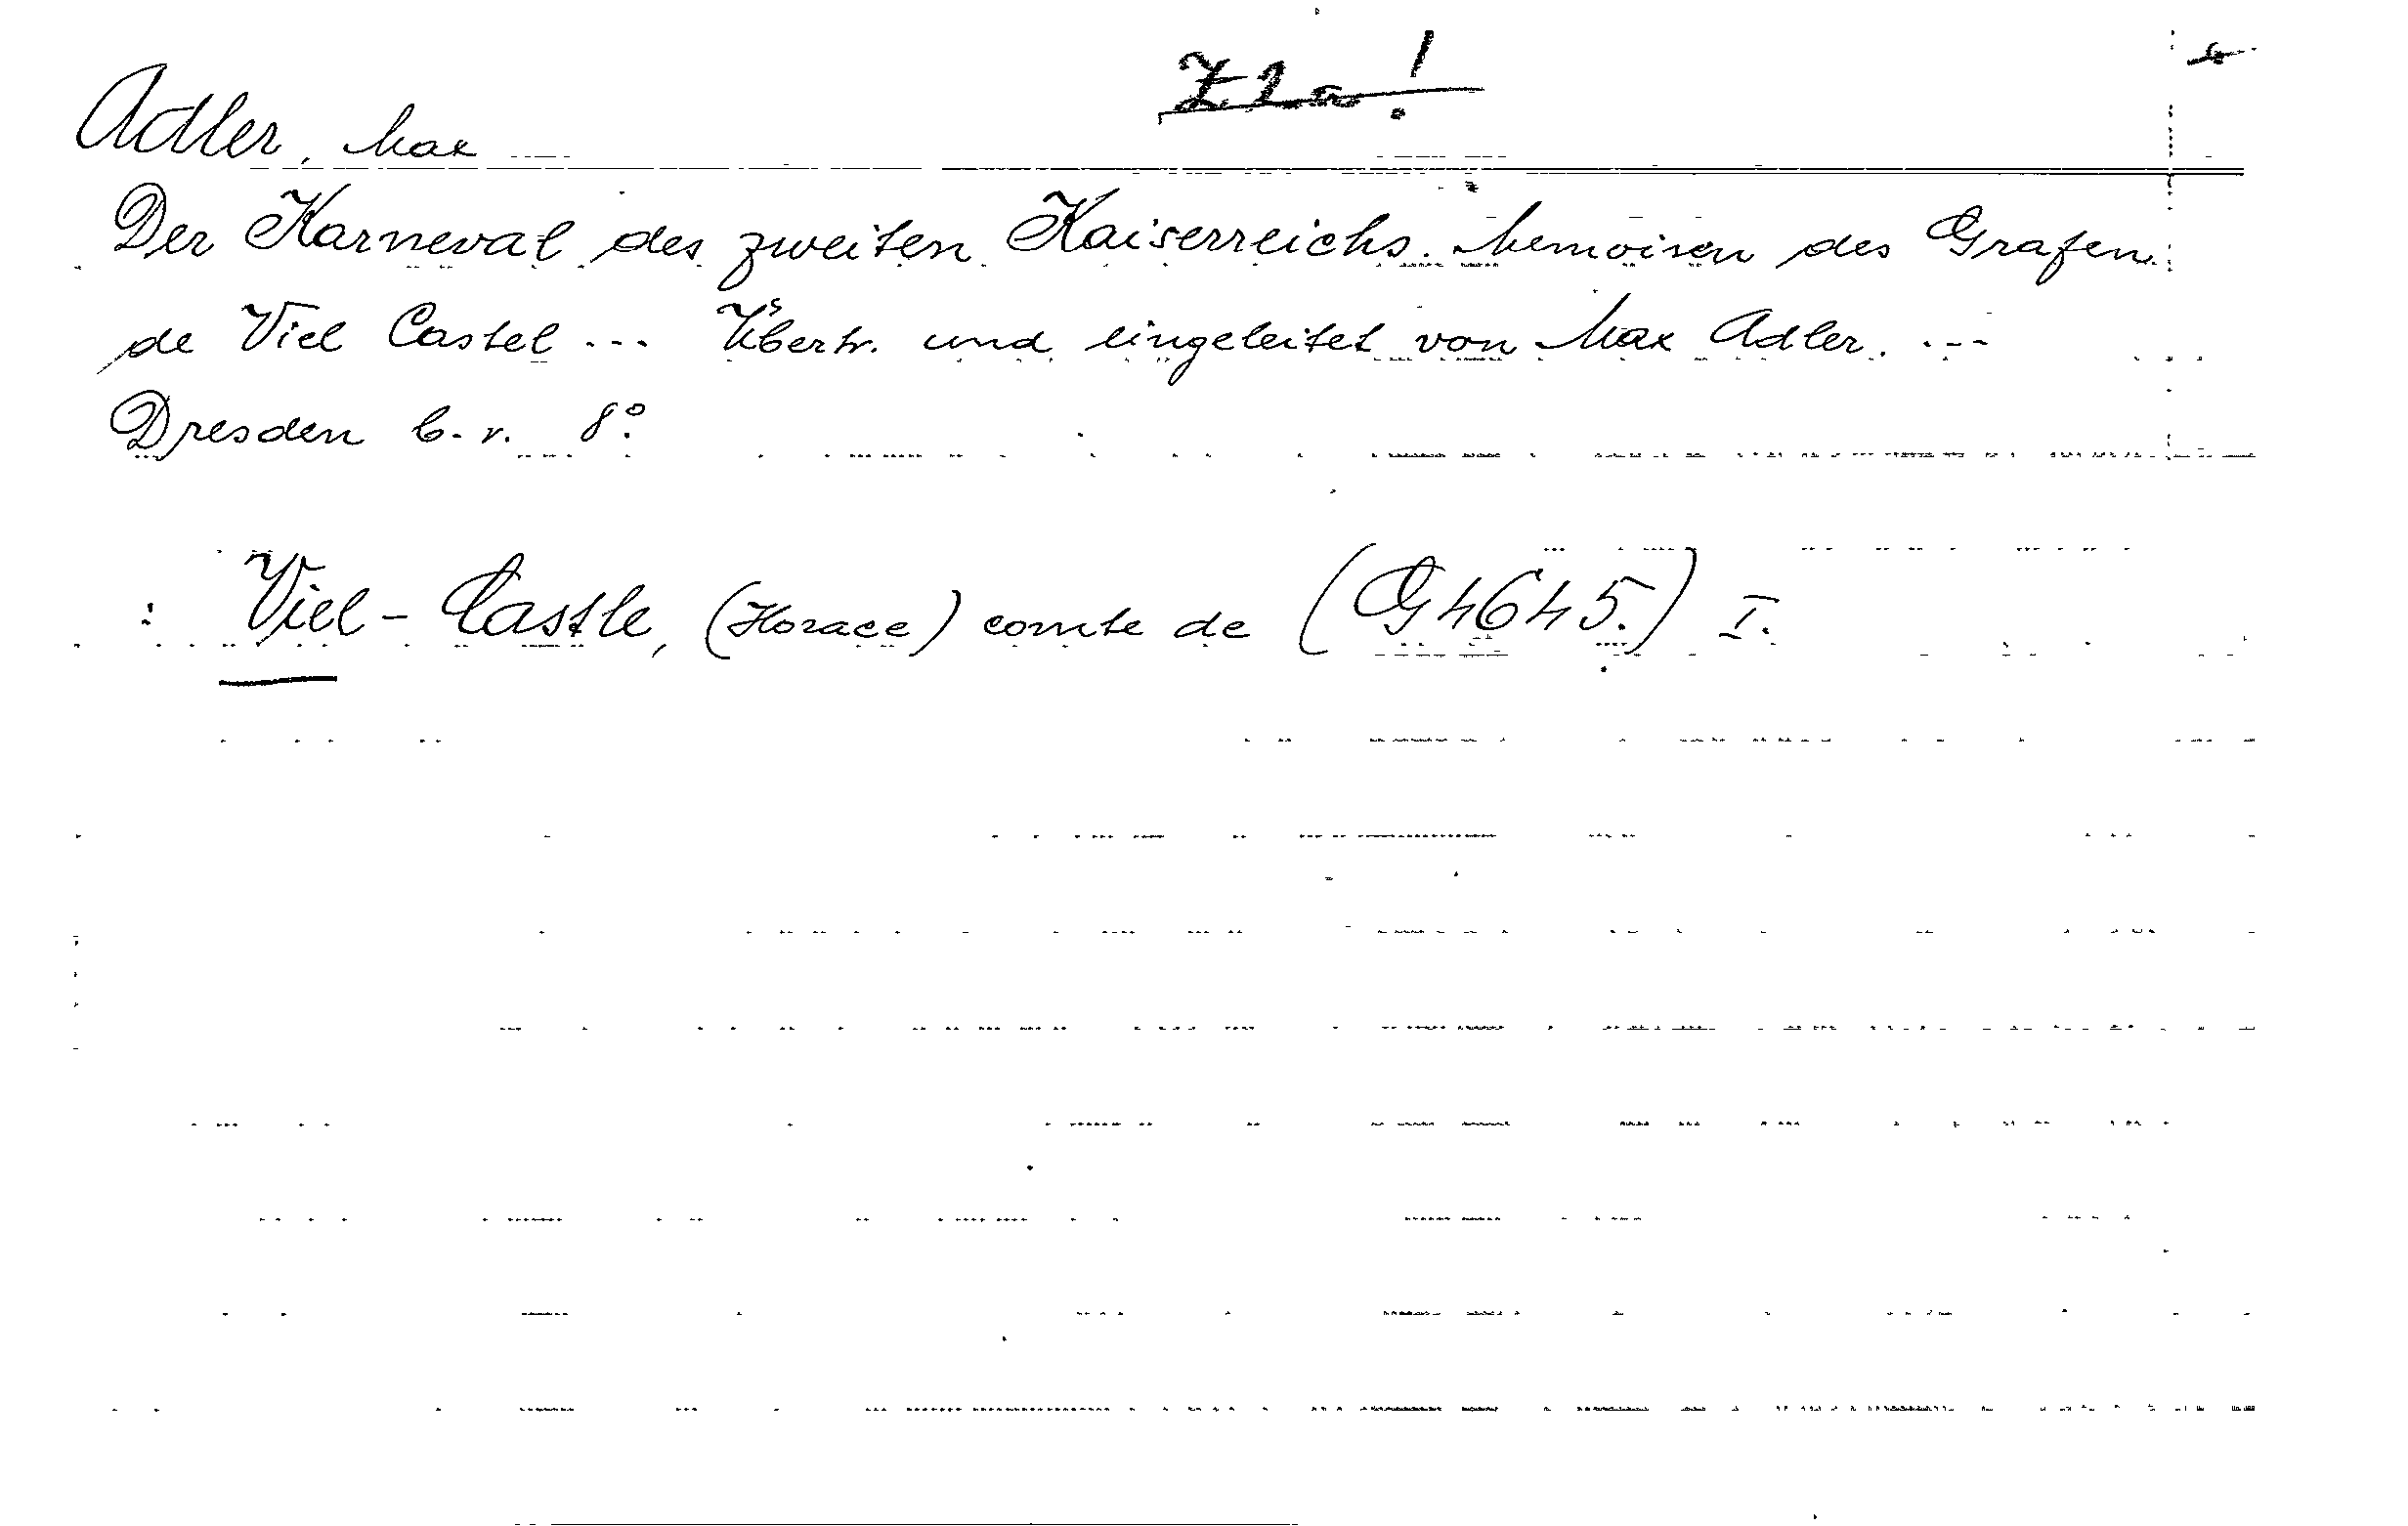 Adler, Max
Der Karneval des zweiten Kaiserreichs. Memoiren des Grafen
de Viel Castel ... Übertr. und eingeleitet von Max Adler. ...
Dresden b. r. 8°.
: Viel-Castle, (Horace) comte de (G 4645.) I.